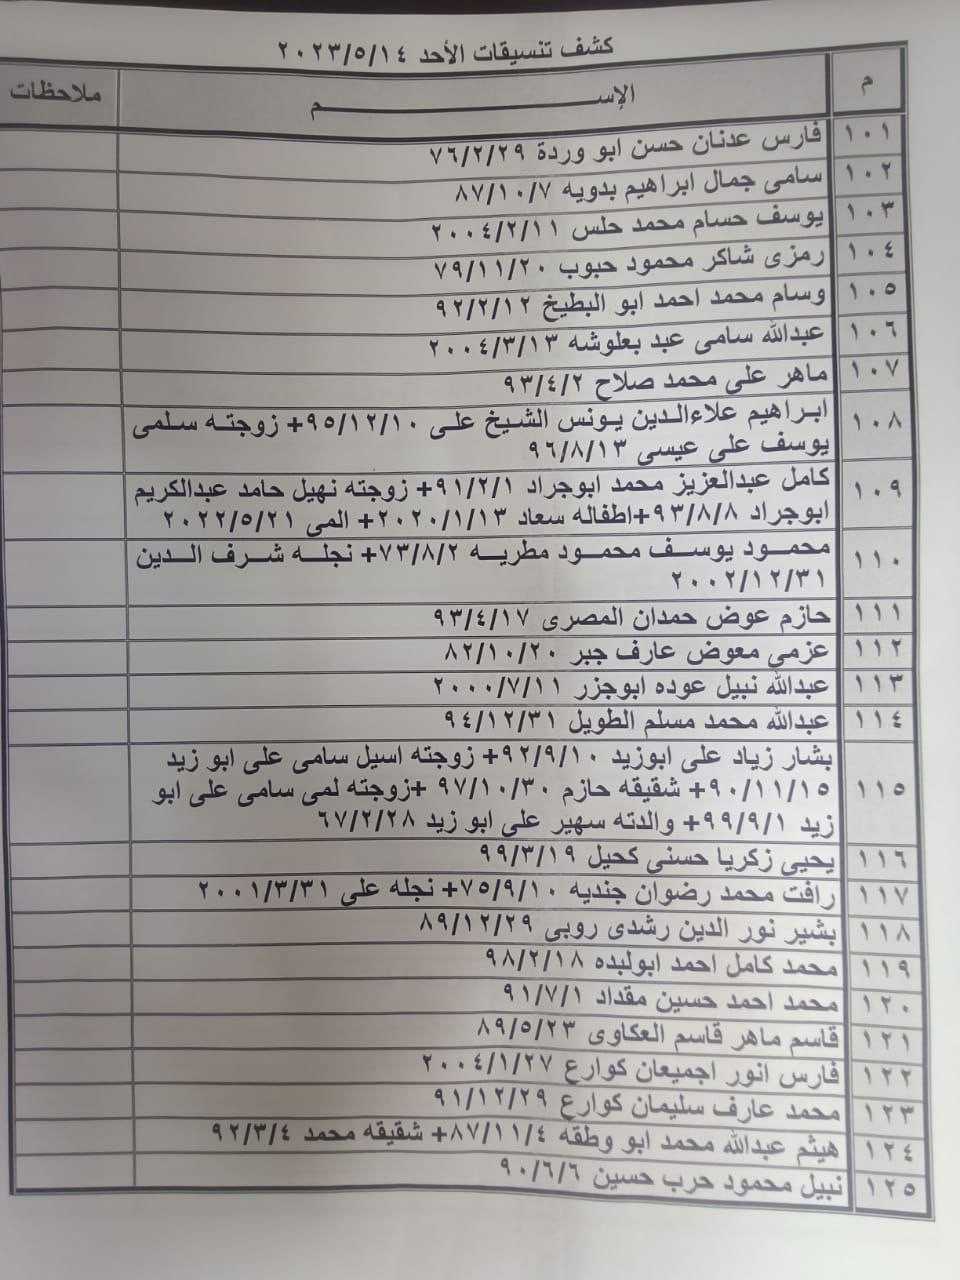 كشف تنسيقات الأحد ٢٠٢٣/٥/١٤
م الإســـــــــم ملاحظات
١٠١ فارس عدنان حسن ابو وردة ٧٦/٢/٢٩
١٠٢ سامى جمال ابراهيم بدويه ٨٧/١٠/٧
١٠٣ يوسف حسام محمد حلس ٢٠٠٤/٢/١١
١٠٤ رمزى شاكر محمود حبوب ٧٩/١١/٢٠
١٠٥ وسام محمد احمد ابو البطيخ ٩٢/٢/١٢
١٠٦ عبدالله سامى عبد بعلوشه ٢٠٠٤/٣/١٣
١٠٧ ماهر على محمد صلاح ٩٣/٤/٢
١٠٨ ابراهيم علاءالدين يونس الشيخ على ٩٥/١٢/١٠+ زوجته سلمى
يوسف على عيسى ٩٦/٨/١٣
١٠٩ كامل عبدالعزيز محمد ابوجراد ٩١/٢/١+ زوجته نهيل حامد عبدالكريم
ابوجراد ٩٣/٨/٨+اطفاله سعاد ٢٠٢٠/١/١٣+ المى ٢٠٢٢/٥/٢١
١١٠ محمود يوسف محمود مطريه ٧٣/٨/٢+ نجله شرف الدين
٢٠٠٢/١٢/٣١
١١١ حازم عوض حمدان المصرى ٩٣/٤/١٧
١١٢ عزمى معوض عارف جبر ٨٢/١٠/٢٠
١١٣ عبدالله نبيل عوده ابوجزر ٢٠٠٠/٧/١١
١١٤ عبدالله محمد مسلم الطويل ٩٤/١٢/٣١
١١٥ بشار زياد على ابوزيد ٩٢/٩/١٠+ زوجته اسيل سامى على ابو زيد
٩٠/١١/١٥+ شقيقه حازم ٩٧/١٠/٣٠ +زوجته لمى سامى على ابو
زيد ٩٩/٩/١+ والدته سهير على ابو زيد ٦٧/٢/٢٨
١١٦ يحيى زكريا حسنى كحيل ٩٩/٣/١٩
١١٧ رافت محمد رضوان جنديه ٧٥/٩/١٠+ نجله على ٢٠٠١/٣/٣١
١١٨ بشير نور الدين رشدى روبى ٨٩/١٢/٢٩
١١٩ محمد كامل احمد ابولبده ٩٨/٢/١٨
١٢٠ محمد احمد حسين مقداد ٩١/٧/١
١٢١ قاسم ماهر قاسم العكاوى ٨٩/٥/٢٣
١٢٢ فارس انور اجميعان كوارع ٢٠٠٤/١/٢٧
١٢٣ محمد عارف سليمان كوارع ٩١/١٢/٢٩
١٢٤ هيثم عبدالله محمد ابو وطفه ٨٧/١١/٤+ شقيقه محمد ٩٢/٣/٤
١٢٥ نبيل محمود حرب حسين ٩٠/٦/٦